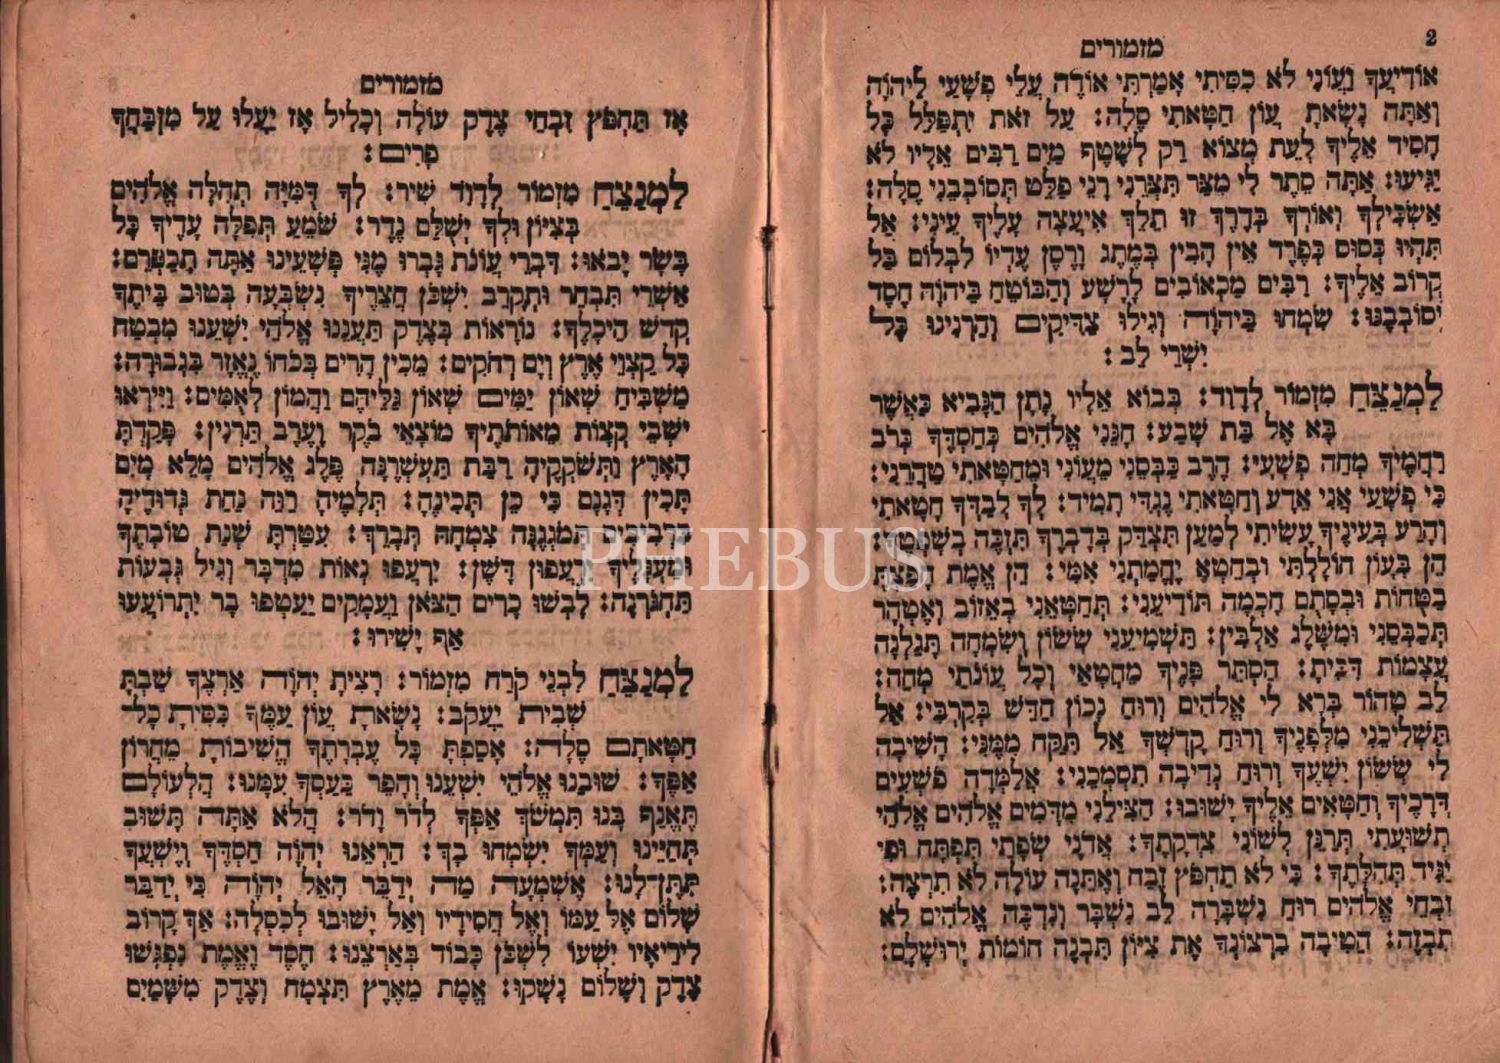 2
מזמורים
אוֹדִיעֲךָ וַעֲוֹנִי לֹא כִסִּיתִי אָמַרְתִּי אוֹדֶה עֲלֵי פְשָׁעַי לַיהוָֹה
וְאַתָּה נָשָׂאתָ עֲוֹן חַטָּאתִי סֶלָה: עַל זֹאת יִתְפַּלֵּל כָּל
חָסִיד אֵלֶיךָ לְעֵת מְצוֹא רַק לְשֵׁטֶף מַיִם רַבִּים אֵלָיו לֹא
יַגִּיעוּ: אַתָּה סֵתֶר לִי מִצַּר תִּצְּרֵנִי רָנֵּי פַלֵּט תְּסוֹבְבֵנִי סֶלָה:
אַשְׂכִּילְךָ וְאוֹרְךָ בְּדֶרֶךְ זוּ תֵלֵךְ אִיעֲצָה עָלֶיךָ עֵינִי: אַל
תִּהְיוּ כְּסוּס כְּפֶרֶד אֵין הָבִין בְּמֶתֶג וָרֶסֶן עֶדְיוֹ לִבְלוֹם בַּל
קְרוֹב אֵלֶיךָ: רַבִּים מַכְאוֹבִים לָרָשָׁע וְהַבּוֹטֵחַ בַּיהוָֹה חֶסֶד
יְסוֹבְבֶנּוּ: שִׂמְחוּ בַיהוָֹה וְגִילוּ צַדִּיקִים וְהַרְנִינוּ כָּל
יִשְׁרֵי לֵב:
לַמְנַצֵּחַ מִזְמוֹר לְדָוִד: בְּבוֹא אֵלָיו נָתָן הַנָּבִיא כַּאֲשֶׁר
בָּא אֶל בַּת שָׁבַע: חָנֵּנִי אֱלֹהִים כְּחַסְדֶּךָ כְּרֹב
רַחֲמֶיךָ מְחֵה פְשָׁעָי: הֶרֶב כַּבְּסֵנִי מֵעֲוֹנִי וּמֵחַטָּאתִי טַהֲרֵנִי:
כִּי פְשָׁעַי אֲנִי אֵדָע וְחַטָּאתִי נֶגְדִּי תָמִיד: לְךָ לְבַדְּךָ חָטָאתִי
וְהָרַע בְּעֵינֶיךָ עָשִׂיתִי לְמַעַן תִּצְדַּק בְּדָבְרֶךָ תִּזְכֶּה בְשָׁפְטֶךָ:
הֵן בְּעָוֹן חוֹלָלְתִּי וּבְחֵטְא יֶחֱמַתְנִי אִמִּי: הֵן אֱמֶת חָפַצְתָּ
בַטֻּחוֹת וּבְסָתֻם חָכְמָה תוֹדִיעֵנִי: תְּחַטְּאֵנִי בְאֵזוֹב וְאֶטְהָר
תְּכַבְּסֵנִי וּמִשֶּׁלֶג אַלְבִּין: תַּשְׁמִיעֵנִי שָׂשׂוֹן וְשִׂמְחָה תָּגֵלְנָה
עֲצָמוֹת דִּכִּיתָ: הַסְתֵּר פָּנֶיךָ מֵחֲטָאָי וְכָל עֲוֹנֹתַי מְחֵה:
לֵב טָהוֹר בְּרָא לִי אֱלֹהִים וְרוּחַ נָכוֹן חַדֵּשׁ בְּקִרְבִּי: אַל
תַּשְׁלִיכֵנִי מִלְּפָנֶיךָ וְרוּחַ קָדְשְׁךָ אַל תִּקַּח מִמֶּנִּי: הָשִׁיבָה
לִּי שְׂשׂוֹן יִשְׁעֶךָ וְרוּחַ נְדִיבָה תִסְמְכֵנִי: אֲלַמְּדָה פֹשְׁעִים
דְּרָכֶיךָ וְחַטָּאִים אֵלֶיךָ יָשׁוּבוּ: הַצִּילֵנִי מִדָּמִים אֱלֹהִים אֱלֹהֵי
תְשׁוּעָתִי תְּרַנֵּן לְשׁוֹנִי צִדְקָתֶךָ: אֲדֹנָי שְׂפָתַי תִּפְתָּח וּפִי
יַגִּיד תְּהִלָּתֶךָ: כִּי לֹא תַחְפֹּץ זֶבַח וְאֶתֵּנָה עוֹלָה לֹא תִרְצֶה:
זִבְחֵי אֱלֹהִים רוּחַ נִשְׁבָּרָה לֵב נִשְׁבָּר וְנִדְכֶּה אֱלֹהִים לֹא
תִבְזֶה: הֵטִיבָה בִרְצוֹנְךָ אֶת צִיּוֹן תִּבְנֶה חוֹמוֹת יְרוּשָׁלָם:
מזמורים
אָז תַּחְפֹּץ זִבְחֵי צֶדֶק עוֹלָה וְכָלִיל אָז יַעֲלוּ עַל מִזְבַּחֲךָ
פָרִים:
לַמְנַצֵּחַ מִזְמוֹר לְדָוִד שִׁיר: לְךָ דֻמִיָּה תְהִלָּה אֱלֹהִים
בְּצִיּוֹן וּלְךָ יְשֻׁלַּם נֶדֶר: שֹׁמֵעַ תְּפִלָּה עָדֶיךָ כָּל
בָּשָׂר יָבֹאוּ: דִּבְרֵי עֲוֹנֹת גָּבְרוּ מֶנִּי פְּשָׁעֵינוּ אַתָּה תְכַפְּרֵם:
אַשְׁרֵי תִּבְחַר וּתְקָרֵב יִשְׁכֹּן חֲצֵרֶיךָ נִשְׂבְּעָה בְּטוּב בֵּיתֶךָ
קְדֹשׁ הֵיכָלֶךָ: נוֹרָאוֹת בְּצֶדֶק תַּעֲנֵנוּ אֱלֹהֵי יִשְׁעֵנוּ מִבְטָח
כָּל קַצְוֵי אֶרֶץ וְיָם רְחֹקִים: מֵכִין הָרִים בְּכֹחוֹ נֶאְזָר בִּגְבוּרָה:
מַשְׁבִּיחַ שְׁאוֹן יַמִּים שְׁאוֹן גַּלֵּיהֶם וַהֲמוֹן לְאֻמִּים: וַיִּירְאוּ
יֹשְׁבֵי קְצָוֹת מֵאוֹתֹתֶיךָ מוֹצָאֵי בֹקֶר וָעֶרֶב תַּרְנִין: פָּקַדְתָּ
הָאָרֶץ וַתְּשֹׁקְקֶיהָ רַבַּת תַּעְשְׁרֶנָּה פֶּלֶג אֱלֹהִים מָלֵא מָיִם
תָּכִין דְּגָנָם כִּי כֵן תְּכִינֶהָ: תְּלָמֶיהָ רַוֵּה נַחֵת גְּדוּדֶיהָ
בִּרְבִיבִים תְּמֹגְגֶנָּה צִמְחָהּ תְּבָרֵךְ: עִטַּרְתָּ שְׁנַת טוֹבָתֶךָ
וּמַעְגָּלֶיךָ יִרְעֲפוּן דָּשֶׁן: יִרְעֲפוּ נְאוֹת מִדְבָּר וְגִיל גְּבָעוֹת
תַּחְגֹּרְנָה: לָבְשׁוּ כָרִים הַצֹּאן וַעֲמָקִים יַעַטְפוּ בָר יִתְרוֹעֲעוּ
אַף יָשִׁירוּ:
לַמְנַצֵּחַ לִבְנֵי קֹרַח מִזְמוֹר: רָצִיתָ יְהוָֹה אַרְצֶךָ שַׁבְתָּ
שְׁבִית יַעֲקֹב: נָשָׂאתָ עֲוֹן עַמֶּךָ כִּסִּיתָ כָל־
חַטָּאתָם סֶלָה: אָסַפְתָּ כָל עֶבְרָתֶךָ הֱשִׁיבוֹתָ מֵחֲרוֹן
אַפֶּךָ: שׁוּבֵנוּ אֱלֹהֵי יִשְׁעֵנוּ וְהָפֵר כַּעַסְךָ עִמָּנוּ: הַלְעוֹלָם
תֶּאֱנַף בָּנוּ תִּמְשֹׁךְ אַפְּךָ לְדֹר וָדֹר: הֲלֹא אַתָּה תָּשׁוּב
תְּחַיֵּינוּ וְעַמְּךָ יִשְׂמְחוּ בָךְ: הַרְאֵנוּ יְהוָֹה חַסְדֶּךָ וְיֶשְׁעֲךָ
תִּתֶּן־לָנוּ: אֶשְׁמְעָה מַה יְדַבֵּר הָאֵל יְהוָֹה כִּי יְדַבֵּר
שָׁלוֹם אֶל עַמּוֹ וְאֶל חֲסִידָיו וְאַל יָשׁוּבוּ לְכִסְלָה: אַךְ קָרוֹב
לִירֵאָיו יִשְׁעוֹ לִשְׁכֹּן כָּבוֹד בְּאַרְצֵנוּ: חֶסֶד וֶאֱמֶת נִפְגָּשׁוּ
צֶדֶק וְשָׁלוֹם נָשָׁקוּ: אֱמֶת מֵאֶרֶץ תִּצְמָח וְצֶדֶק מִשָּׁמַיִם
PHEBUS